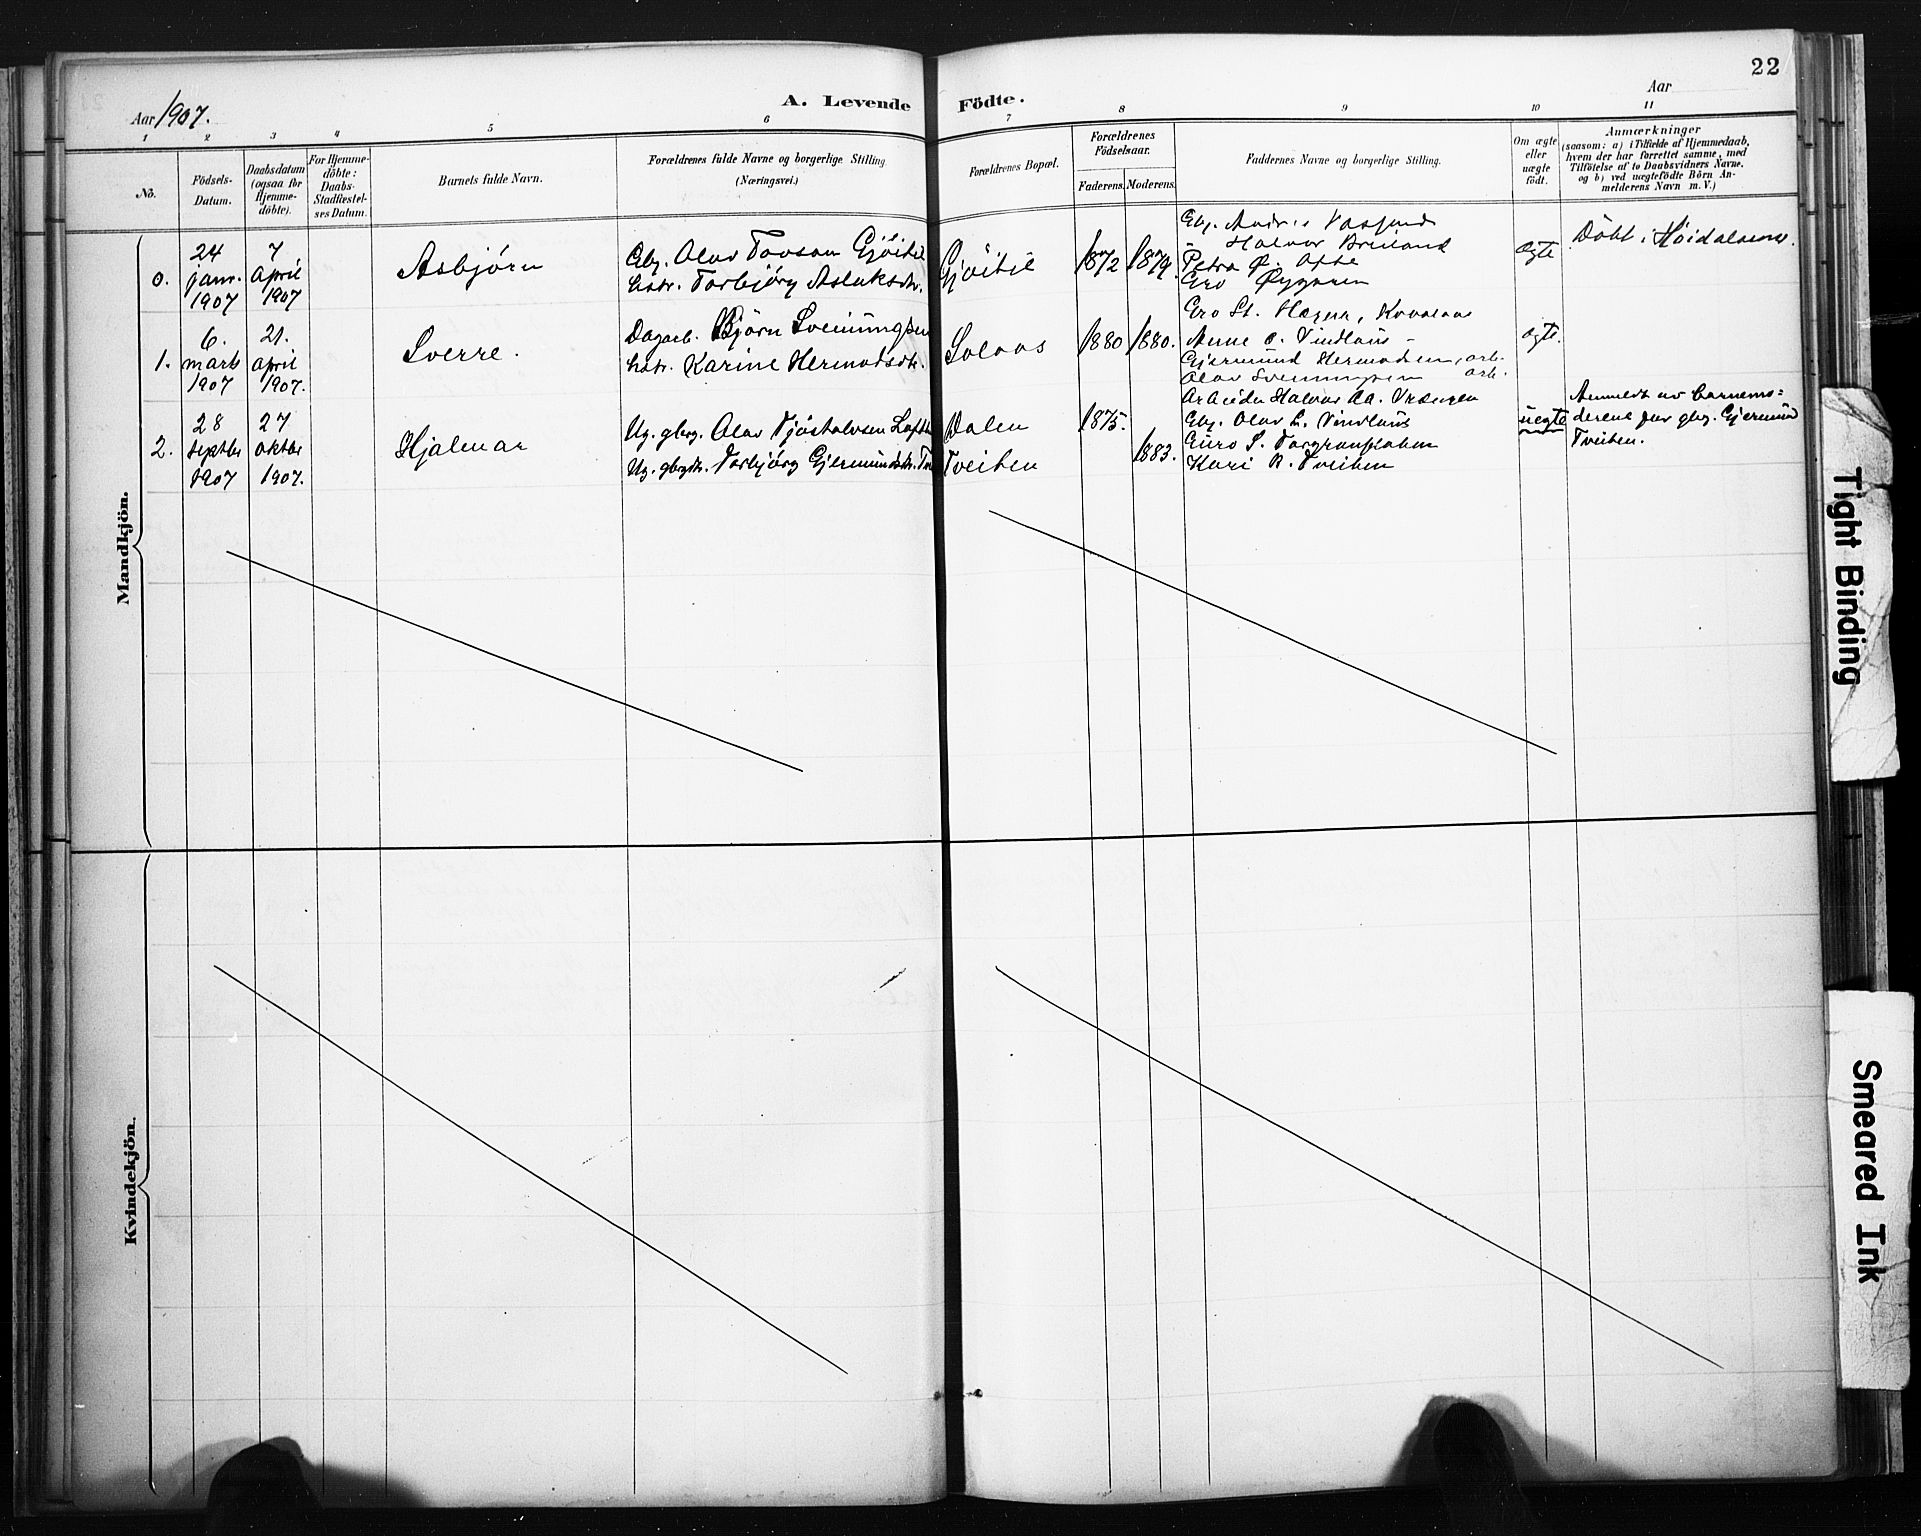 22
Aar 1907.
A. Levende Födte.
Aar
1 2 3 4 5 6 7 8 9 10 11
No.
Födsels-
Datum.
Daabsdatum
(ogsaa for
Hjemme-
döbte).
For Hjemme-
döbte:
Daabs-
Stadfæstel-
ses Datum.
Barnets fulde Navn.
Forældrenes fulde Navne og borgerlige Stilling
(Næringsvei.)
Forældrenes Bopæl.
Forældrenes
Födselsaar.
Faderens. Moderens.
Faddernes Navne og borgerlige Stilling.
Om ægte
eller
uægte
födt.
Anmærkninger
(saasom: a) i Tilfælde af Hjemmedaab,
hvem der har forrettet samme, med
Tilföielse af to Daabsvidners Navne.
og b) ved uægtefödte Börn An-
melderens Navn m. V.)
Mandkjön.
0.
24
janr.
1907
7
April
1907
Asbjörn
Gbr. Olav Tovson Gjöitil
hstr. Torbjörg Aslaksdtr.
Gjöitil
1872
1879.
Halvor Breiland
Petra Ø.
Gro
ægte
Döbt i Höidalsmo.
1.
6.
marts
1907
21.
April
1907.
Sverre.
Dagarb. Björn Sveinungsen
hstr. Karine Hermodsdtr.
Solaas
1880
1880.
Gro St.
Anne O. Vindlaus
Gjermund Hermodsen, arb.
Olav Sveinungsen arb.
ægte.
2.
28
septbr
1907
27
oktbr
1907.
Hjalmar
Ug. gbrg. Olav Tjöstolvsen
Ug. gbrgdtr. Torbjörg Gjermundsdtr.
Dalen
Tveiten
1875.
1883.
Arbeider Halvor Aa.
Gbr. Olav L. Vindlaus
Guro S.
Kari B. Tveiten
uegte
Anmeldt av barnemo-
derens far gbr. Gjermund
Tveiten.
Kvindekjön.
Tight Binding
Smeared Ink